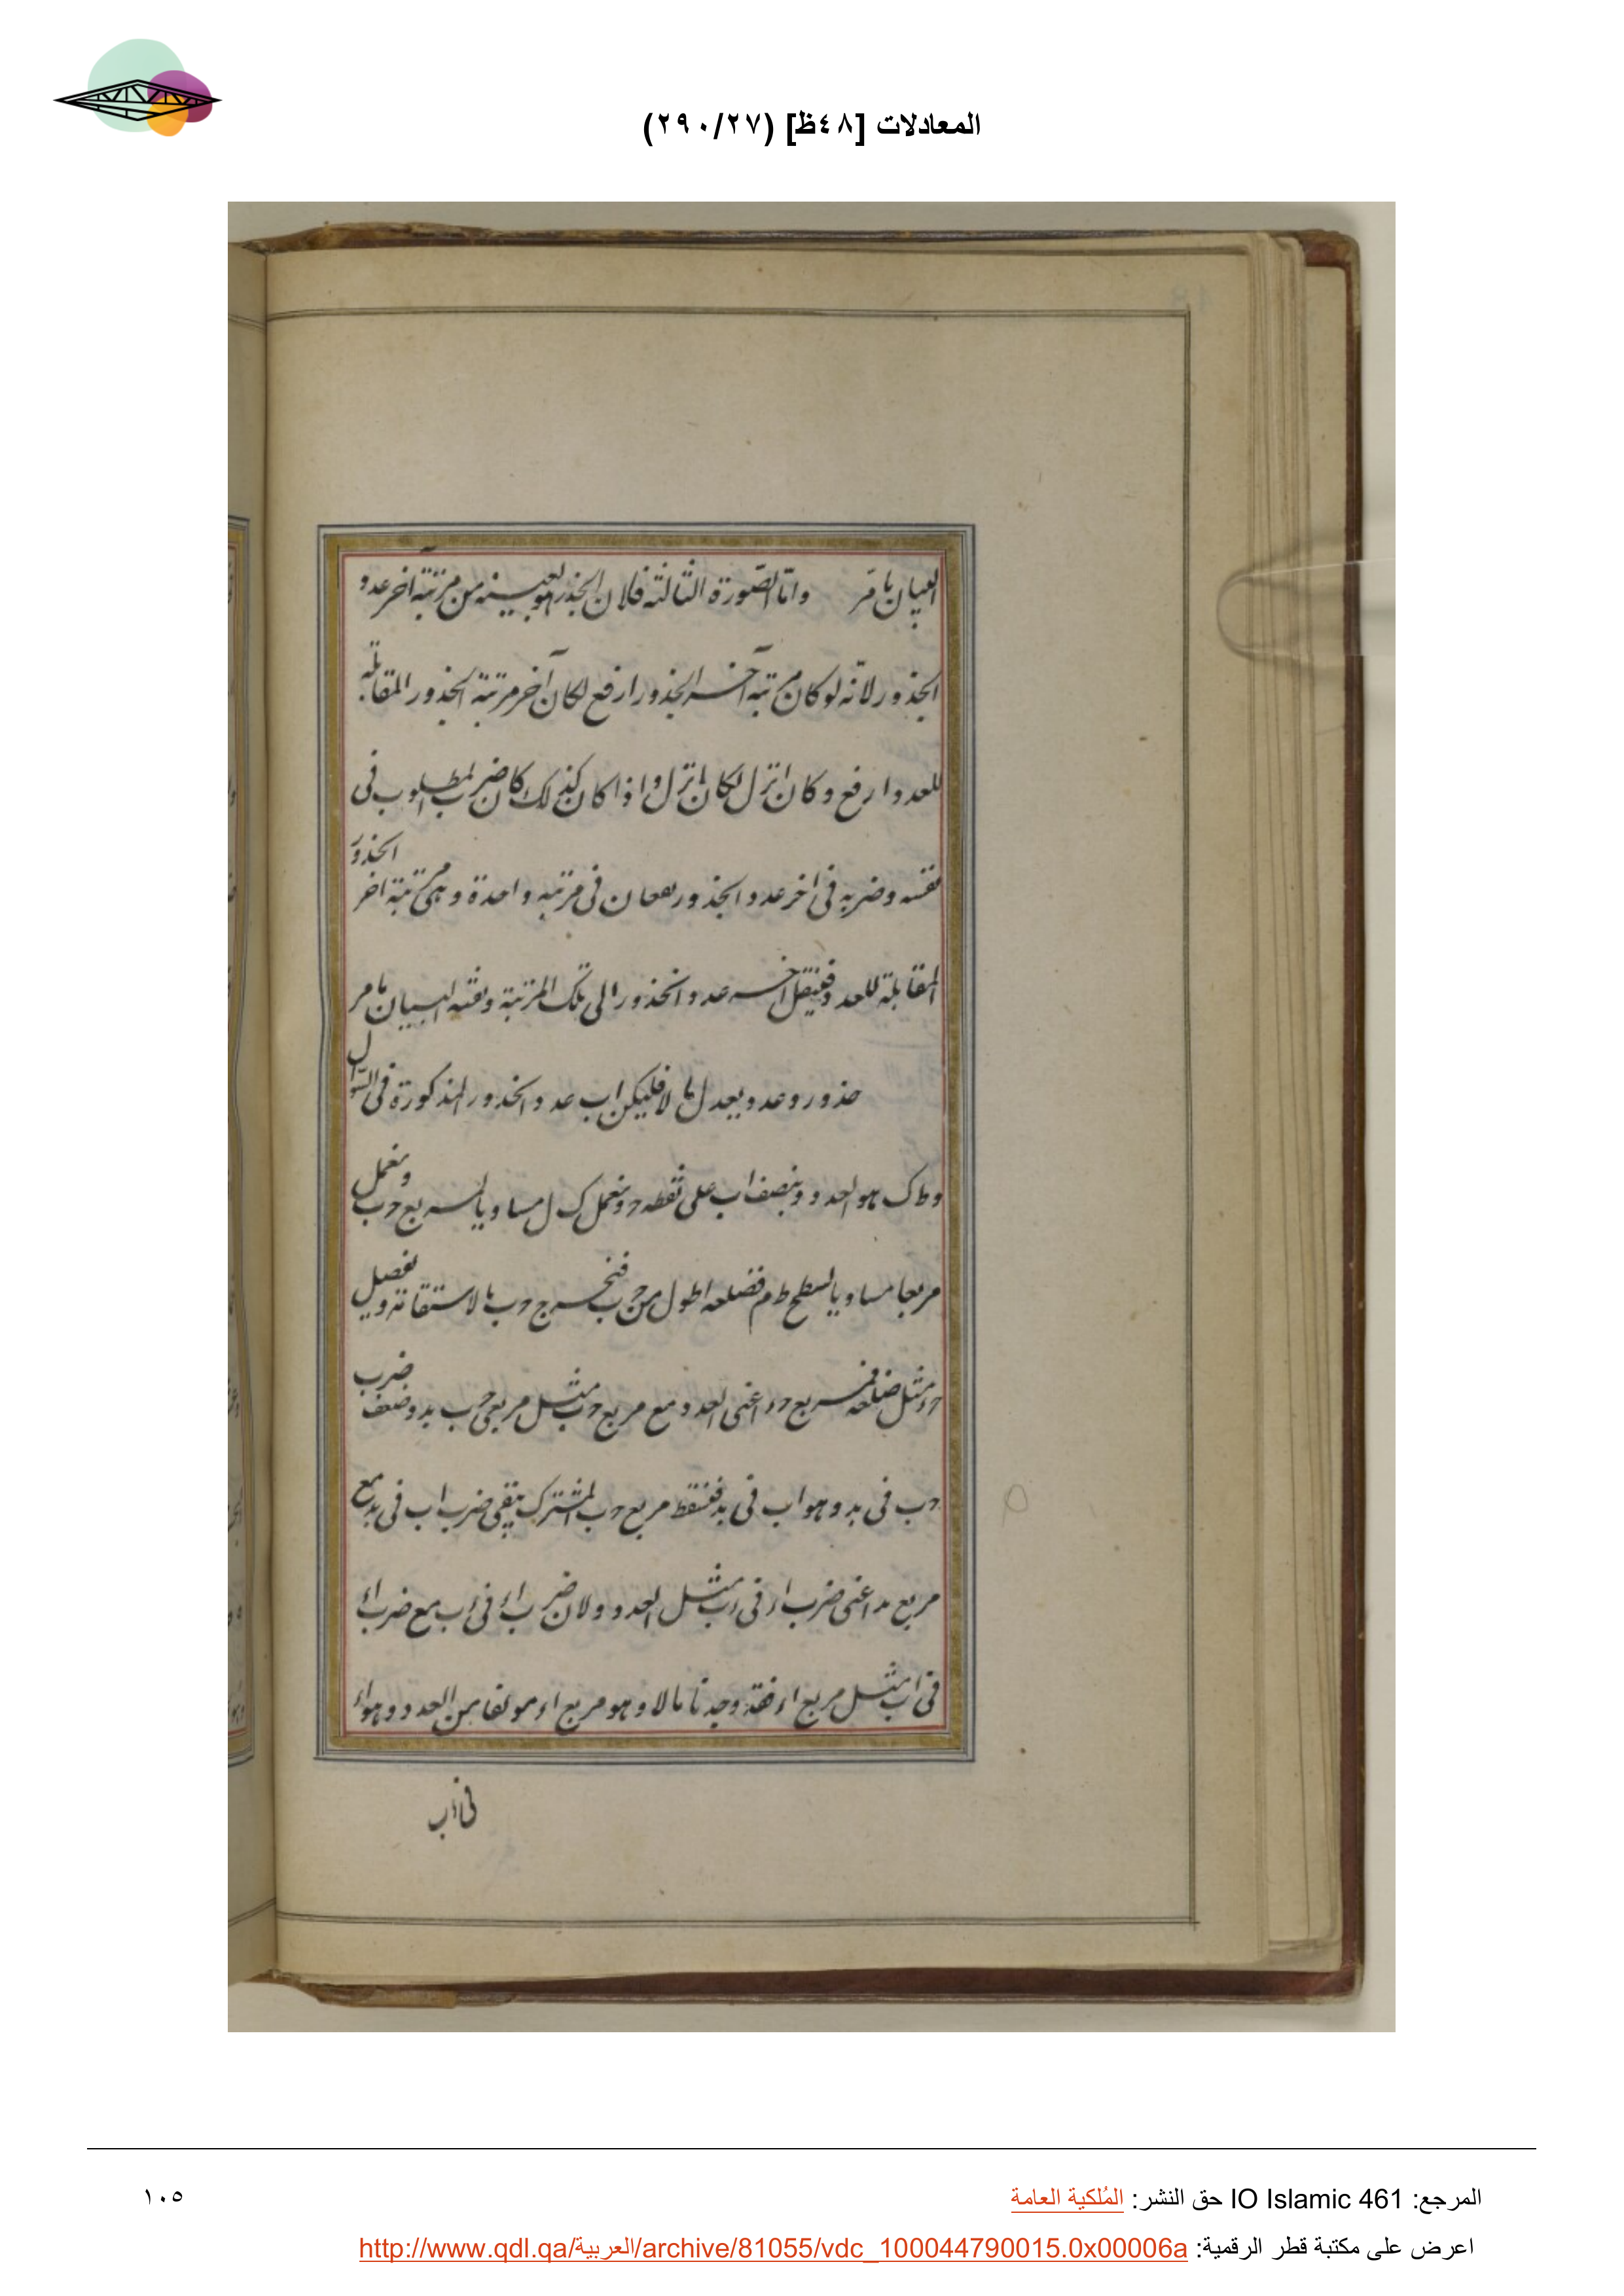 المعادلات [٤٨ظ] (٢٩٠/٢٧)
البيان بامر واما الصورة الثالثة فلان الجذر هو بعينه من مرتبة آخر عدد
الجذور لانه لو كان مرتبة آخر الجذور ارفع لكان آخر مرتبة الجذور المقابلة
للعدد ارفع وكان انزل لكان انزل واذا كان كذلك كان ضرب المطلوب فى
نفسه وضربه فى اخر عدد الجذور يقعان فى مرتبة واحدة وهى مرتبة اخر الجذور
المقابلة للعدد فينقل آخر عدد الجذور الى تلك المرتبة وبقية البيان بامر
جذور وعدد يعدل مالا فليكن اب عدد الجذور المذكورة فى السؤال
وط ك هو العدد وينصف اب على نقطة ح ونعمل ك ل مساويا لمربع ح ب ونعمل
مربعا مساويا لسطح ط م فضلعه اطول من ح ب فنخرج ح ب بالاستقامة ونفصل
ح د مثل ضلعه فمربع ح د اعنى العدد مع مربع ح ب مثل مربعى ح ب ب د وضعف ضرب
ح ب فى ب د وهو اب فى ب د فنسقط مربع ح ب المشترك يبقى ضرب اب فى ب د مع
مربع ب د اعنى ضرب اد فى د ب مثل العدد ولان ضرب اد فى د ب مع ضرب اد
فى اب مثل مربع اد فقد وجدنا مالا وهو مربع اد مؤلفا من العدد وهو اد
فى د ب
المرجع: IO Islamic 461 حق النشر: المُلكية العامة
١٠٥
اعرض على مكتبة قطر الرقمية: http://www.qdl.qa/العربية/archive/81055/vdc_100044790015.0x00006a